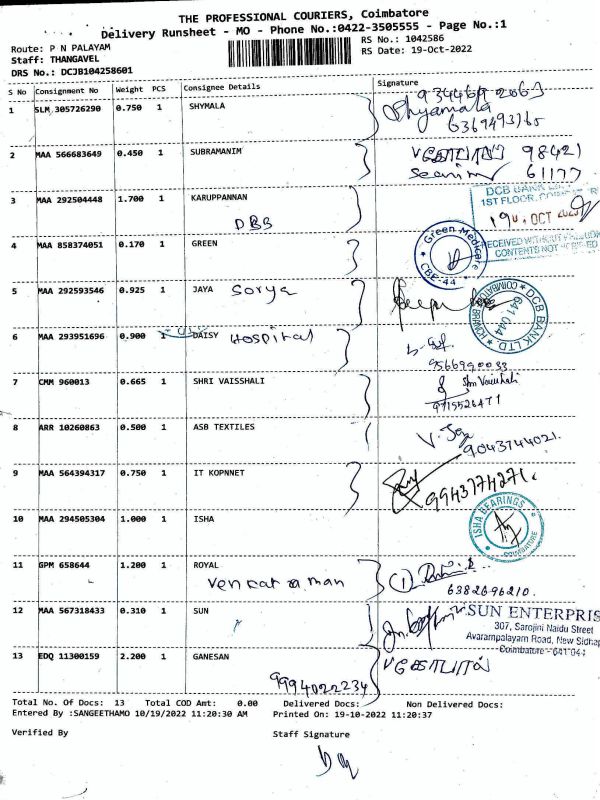 THE PROFESSIONAL COURIERS, Coimbatore
Delivery Runsheet - MO - Phone No.:0422-3505555 - Page No.:1
Route: P N PALAYAM
RS No.: 1042586
Staff: THANGAVEL
RS Date: 19-Oct-2022
DRS No.: DCJB104258601
S No Consignment No Weight PCS Consignee Details Signature
1 SLM 305726290 0.750 1 SHYMALA
Shyamala
2 MAA 566683649 0.450 1 SUBRAMANIM
98421
61177
3 MAA 292504448 1.700 1 KARUPPANNAN
DCB BANK
1ST FLOOR,
OCT
4 MAA 858374051 0.170 1 GREEN
Green Medicare
CBE-44
CONTENTS NOT
5 MAA 292593546 0.925 1 JAYA Sorya
DCB BANK LTD
641 044
6 MAA 293951696 0.900 1 DAISY Hospital
9566990033
7 CMM 960013 0.665 1 SHRI VAISSHALI
8 ARR 10260863 0.500 1 ASB TEXTILES
9043744021.
9 MAA 564394317 0.750 1 IT KOPNNET
9943774271.
10 MAA 294505304 1.000 1 ISHA
ISHA BEARINGS
COIMBATORE
11 GPM 658644 1.200 1 ROYAL
Venkataraman
6382696210.
12 MAA 567318433 0.310 1 SUN
SUN ENTERPRIS
307, Sarojini Naidu Street
Avarampalayam Road, New Sidhap
Coimbatore - 641 044
13 EDQ 11300159 2.200 1 GANESAN
9994022234
Total No. Of Docs: 13 Total COD Amt: 0.00 Delivered Docs: Non Delivered Docs:
Entered By :SANGEETHAMO 10/19/2022 11:20:30 AM Printed On: 19-10-2022 11:20:37
Verified By Staff Signature